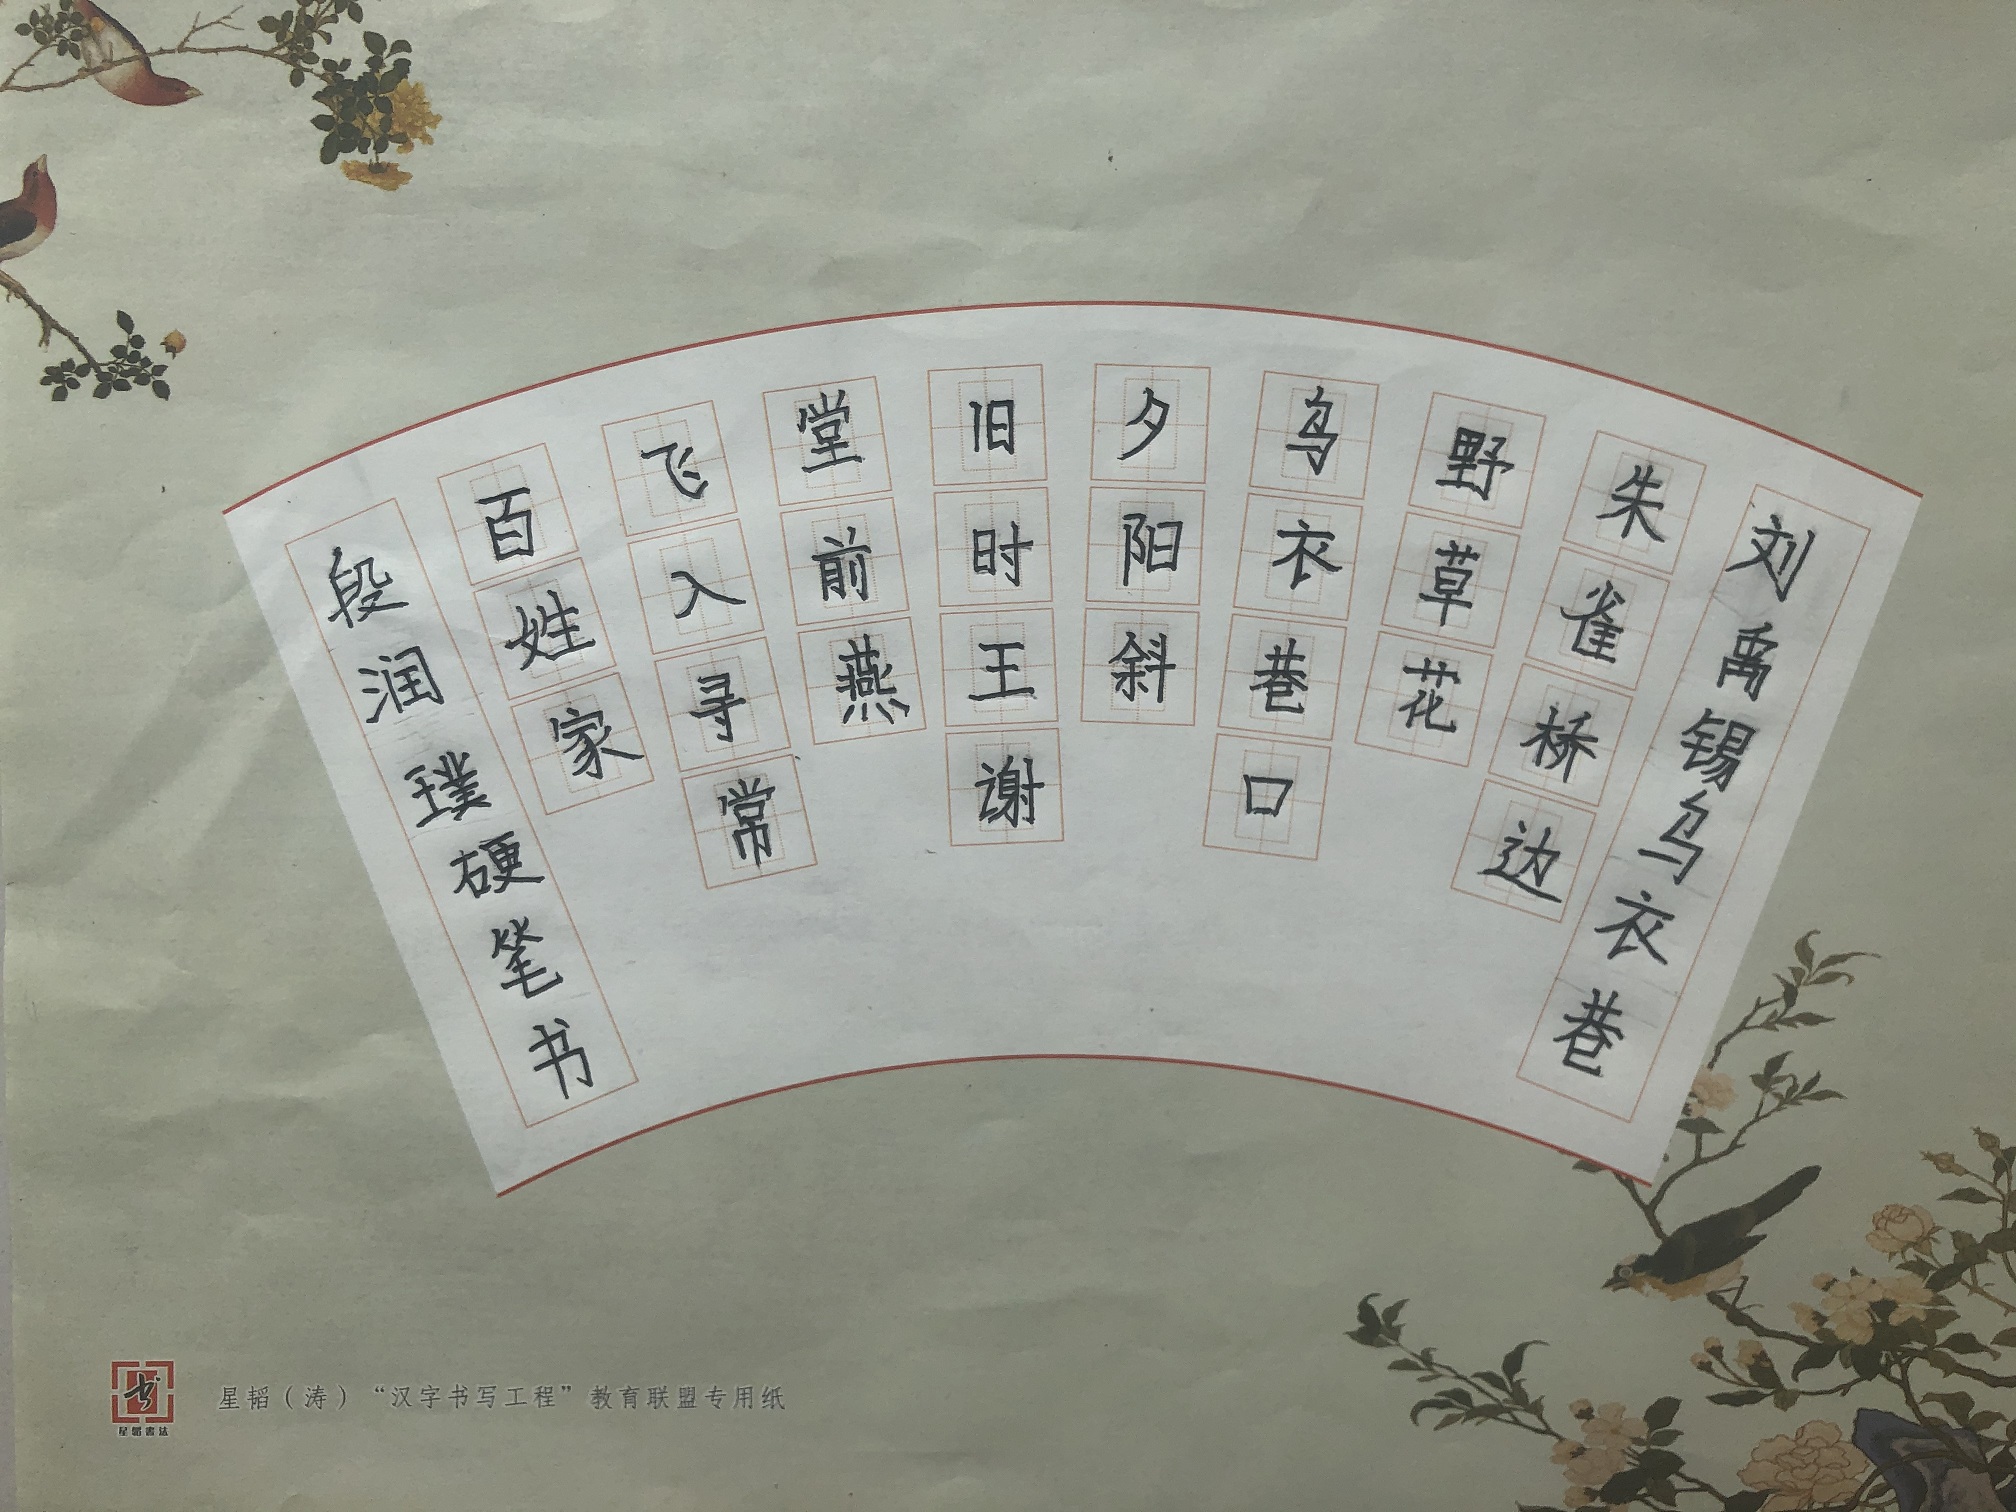 刘禹锡乌衣巷
朱雀桥边
野草花
乌衣巷口
夕阳斜
旧时王谢
堂前燕
飞入寻常
百姓家
段润璞硬笔书
星韬（涛）“汉字书写工程”教育联盟专用纸
星韬書法